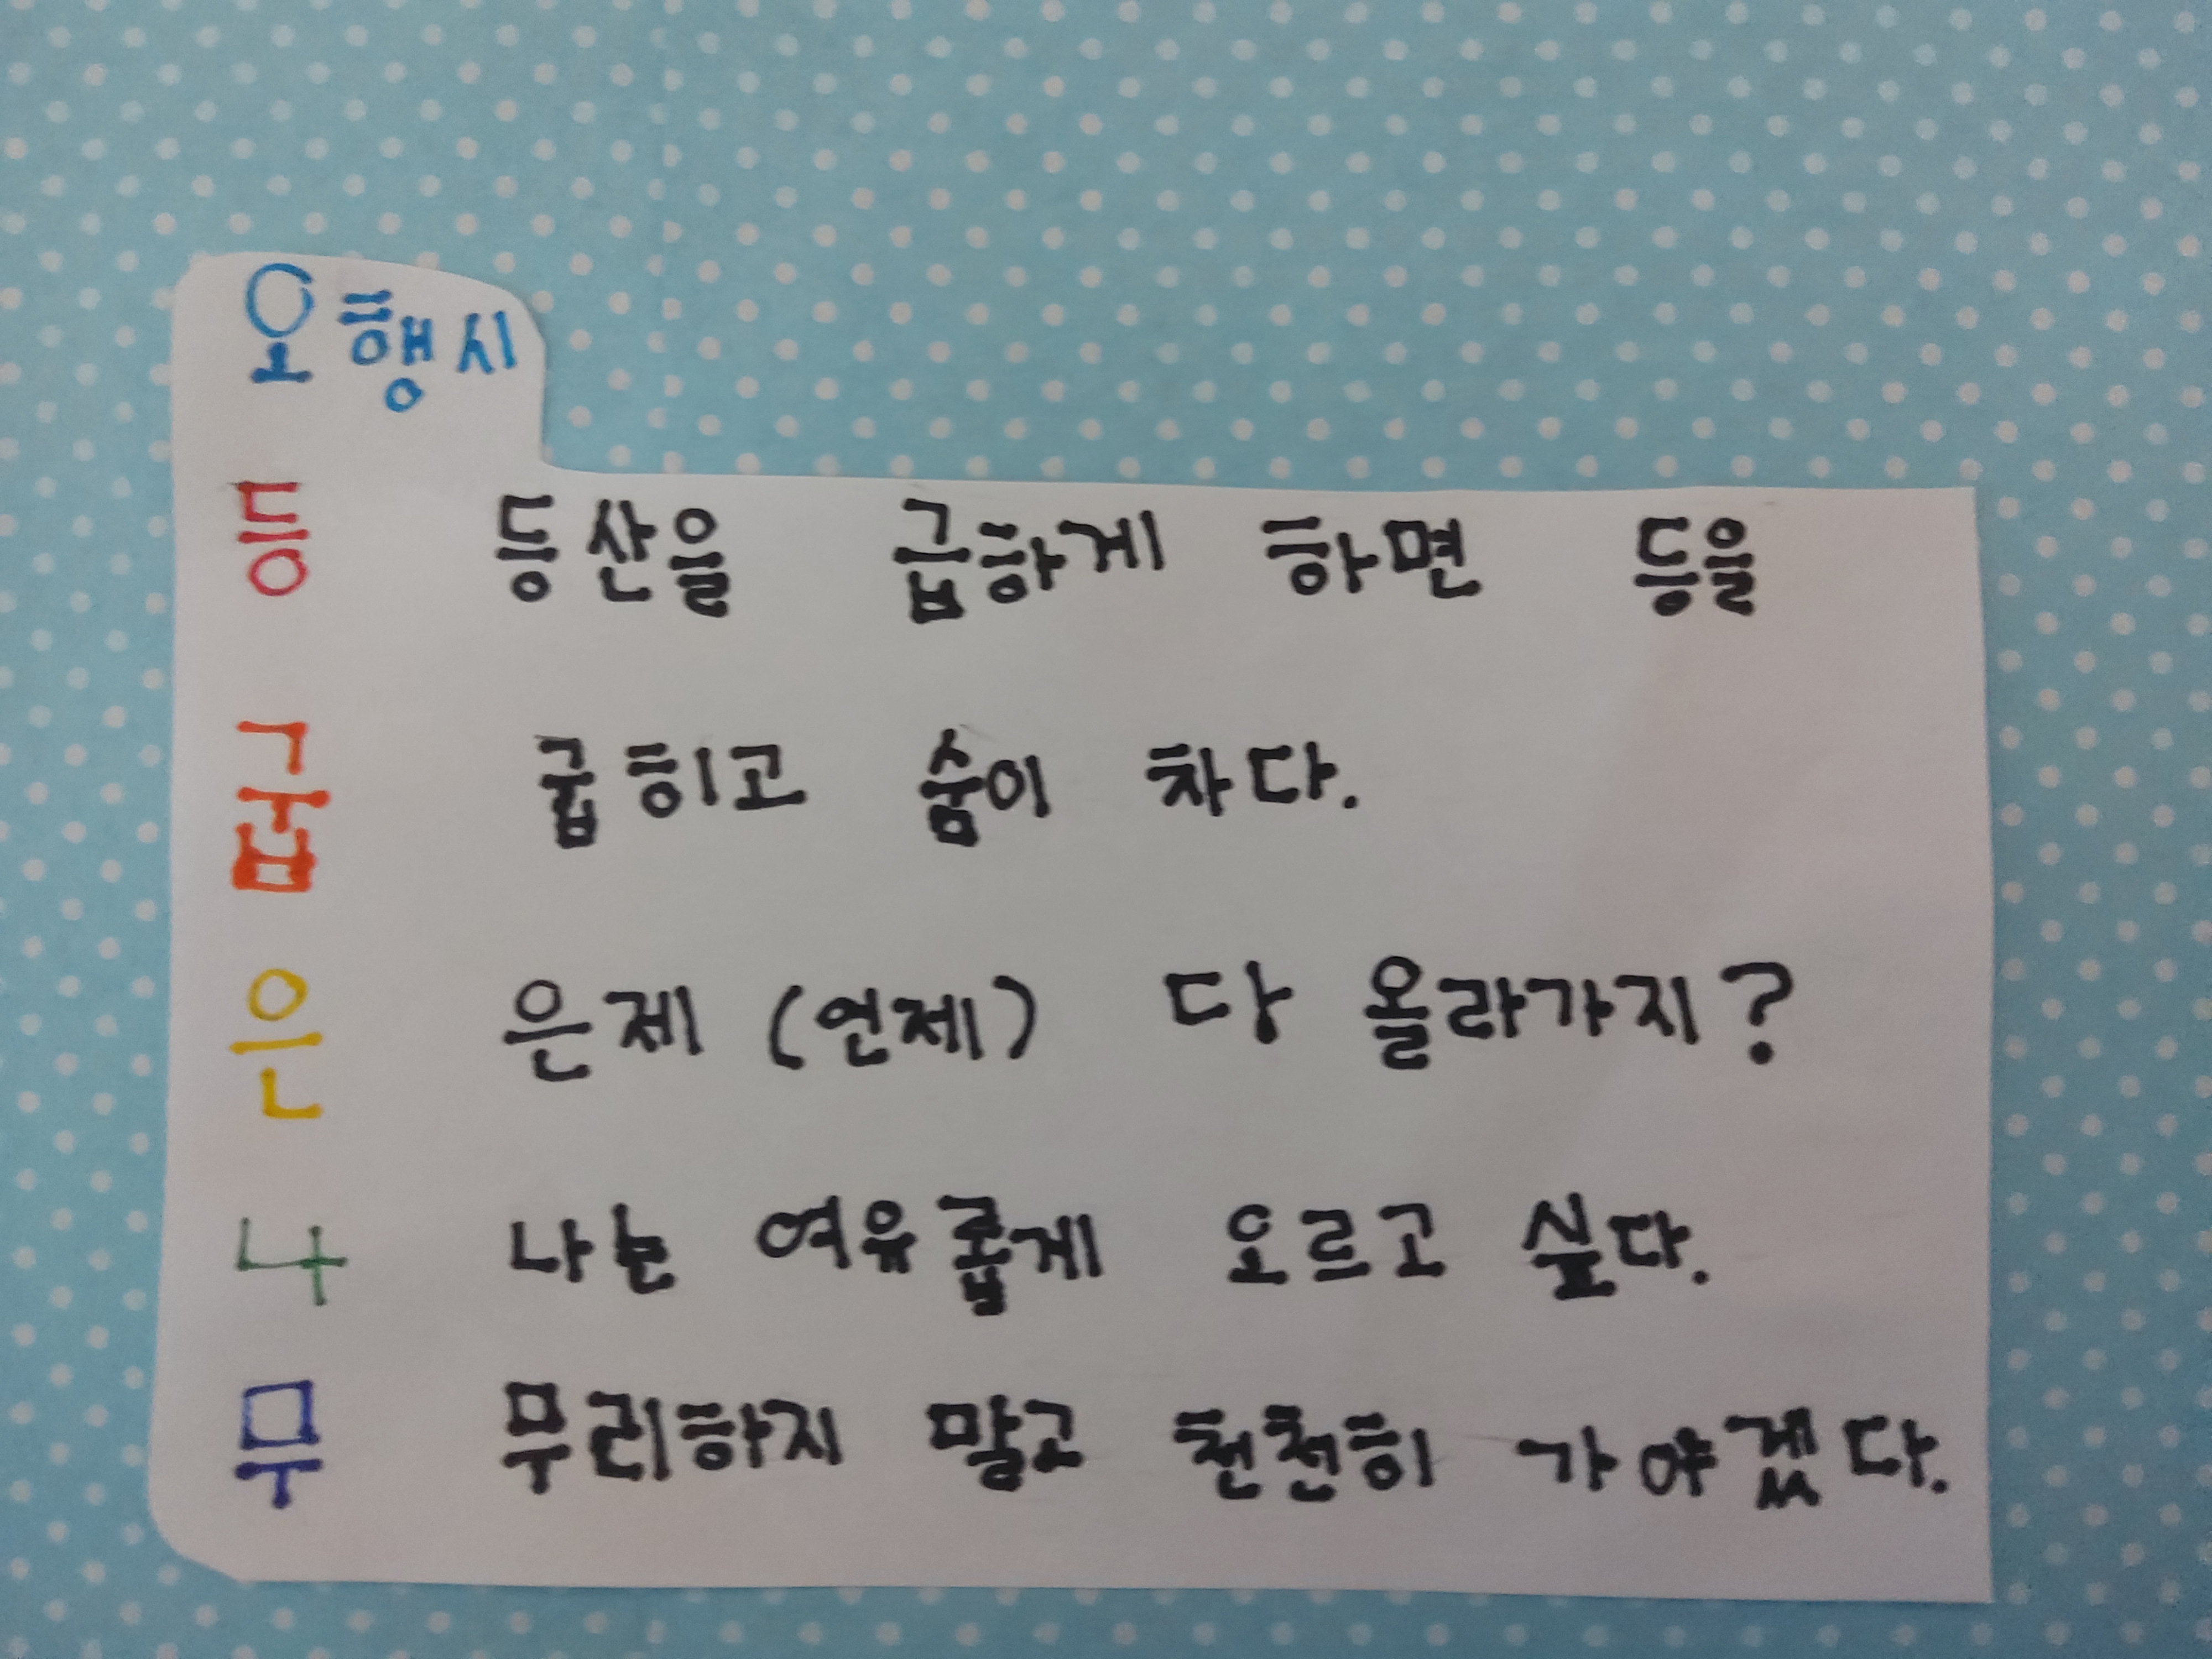 오행시
등 등산을 급하게 하면 등을
굽 굽히고 숨이 차다.
은 은제 (언제) 다 올라가지?
나 나는 여유롭게 오르고 싶다.
무 무리하지 말고 천천히 가야겠다.